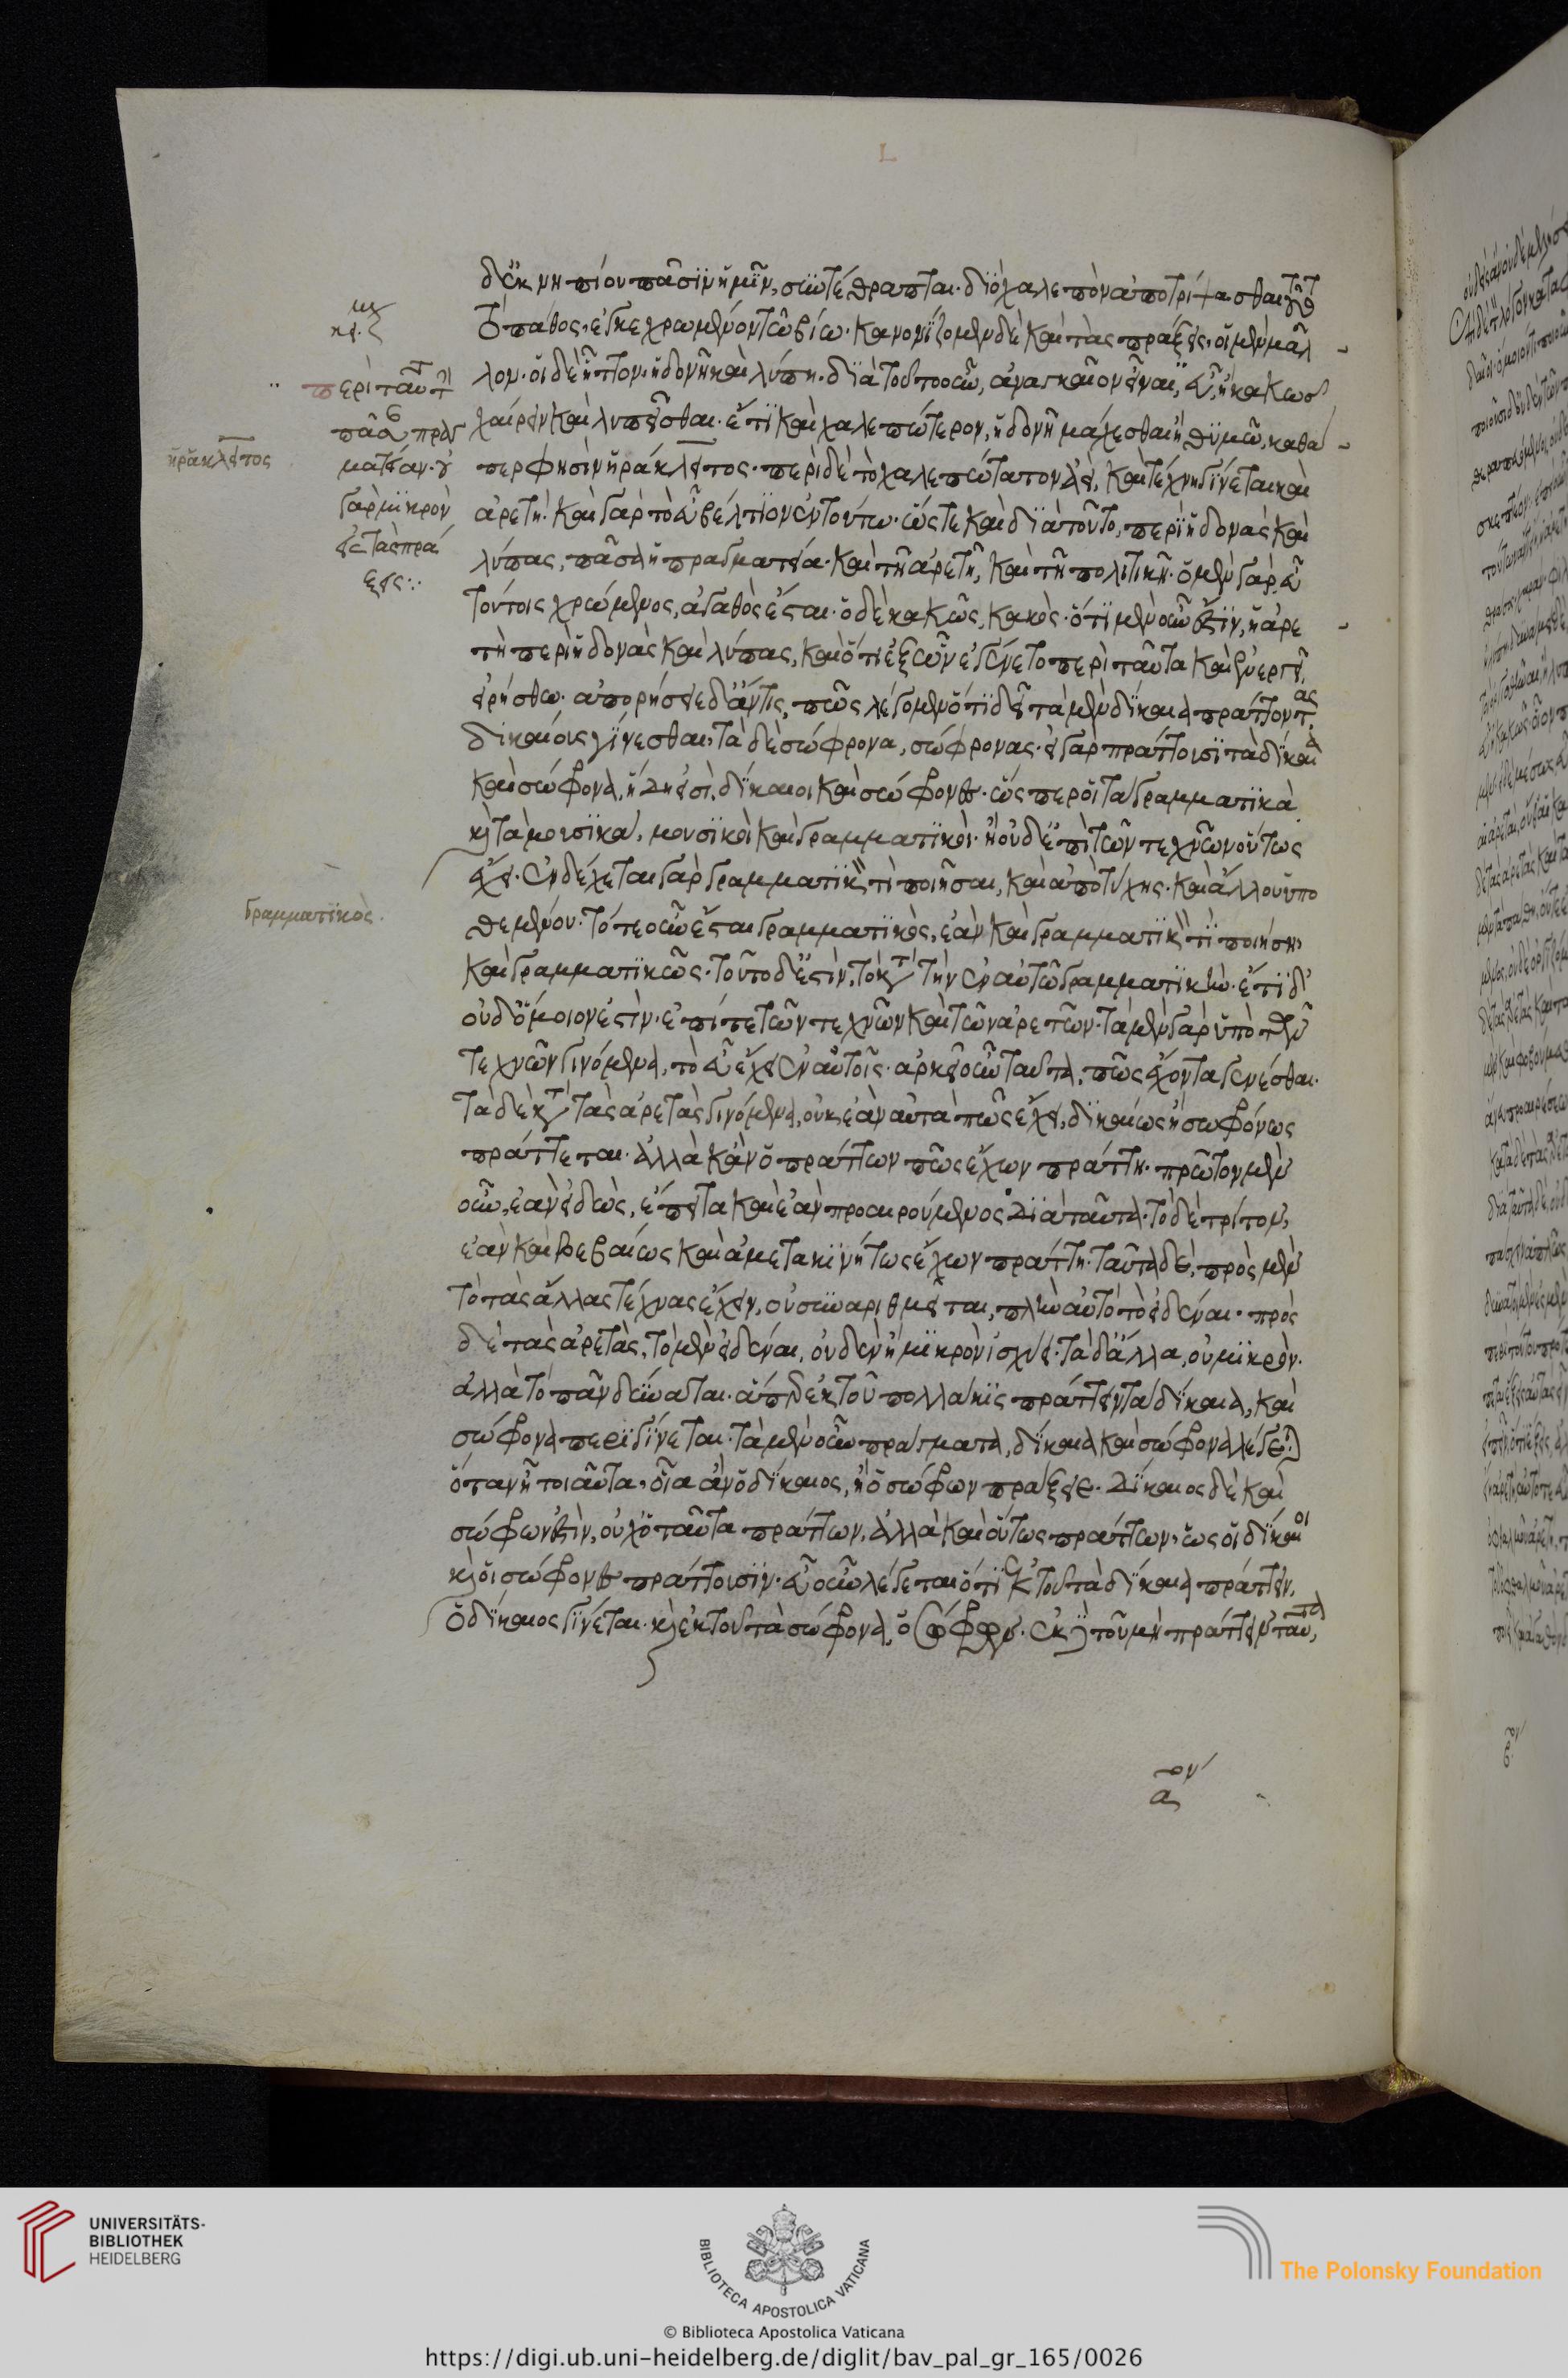 δ' ἐκ νηπίου πᾶσιν ἡμῖν, συντέθραπται· διὸ χαλεπὸν ἀποτρίψασθαι τοῦτο
τὸ πάθος, ἐγκεχρωσμένον τῷ βίῳ· κανονίζομεν δὲ καὶ τὰς πράξεις, οἱ μὲν μᾶλ
λον· οἱ δὲ ἧττον, ἡδονῇ καὶ λύπῃ· διὰ τοῦτο οὖν, ἀναγκαῖον εἶναι, εὖ ἢ κακῶς
χαίρειν καὶ λυπεῖσθαι· ἔτι καὶ χαλεπώτερον, ἡδονῇ μάχεσθαι ἢ θυμῷ, καθά
περ φησὶν ἡράκλειτος· περὶ δὲ τὸ χαλεπώτατον ἀεὶ, καὶ τέχνη γίνεται καὶ
ἀρετή· καὶ γὰρ τὸ εὖ βέλτιον ἐν τούτῳ· ὥστε καὶ διὰ τοῦτο, περὶ ἡδονὰς καὶ
λύπας, πᾶσα ἡ πραγματεία· καὶ τῇ ἀρετῇ, καὶ τῇ πολιτικῇ· ὁ μὲν γὰρ εὖ
τούτοις χρώμενος, ἀγαθὸς ἔσται· ὁ δὲ κακῶς, κακός· ὅτι μὲν οὖν ἐστὶν, ἡ ἀρε
τὴ περὶ ἡδονὰς καὶ λύπας, καὶ ὅτι ἐξ ὧν ἐγένετο περὶ ταῦτα καὶ ἐνεργεῖ,
εἰρήσθω· ἀπορήσειε δ' ἄν τις, πῶς λέγομεν ὅτι δεῖ τὰ μὲν δίκαια πράττοντας
δικαίους γίνεσθαι, τὰ δὲ σώφρονα, σώφρονας· εἰ γὰρ πράττουσι τὰ δίκαια
καὶ σώφρονα, ἤδη εἰσὶ, δίκαιοι καὶ σώφρονες· ὥσπερ οἱ τὰ γραμματικὰ
καὶ τὰ μουσικὰ, μουσικοὶ καὶ γραμματικοί· ἢ οὐδ' ἐπὶ τῶν τεχνῶν οὕτως
ἔχει· ἐνδέχεται γὰρ γραμματικόν τι ποιῆσαι, καὶ ἀπὸ τύχης· καὶ ἄλλου ὑπο
θεμένου· τότε οὖν ἔσται γραμματικὸς, ἐὰν καὶ γραμματικόν τι ποιήσῃ,
καὶ γραμματικῶς· τοῦτο δ' ἐστὶν, τὸ κατὰ τὴν ἐν αὐτῷ γραμματικήν· ἔτι δ'
οὐδ' ὅμοιον ἐστὶν· ἐπί τε τῶν τεχνῶν καὶ τῶν ἀρετῶν· τὰ μὲν γὰρ ὑπὸ τῶν
τεχνῶν γινόμενα, τὸ εὖ ἔχει ἐν αὑτοῖς· ἀρκεῖ οὖν ταῦτα, πῶς ἔχοντα γενέσθαι·
τὰ δὲ κατὰ τὰς ἀρετὰς γινόμενα, οὐκ ἐὰν αὐτά πως ἔχῃ, δικαίως ἢ σωφρόνως
πράττεται· ἀλλὰ κἂν ὁ πράττων πῶς ἔχων πράττῃ· πρῶτον μὲν
οὖν, ἐὰν εἰδὼς, ἔπειτα καὶ ἐὰν προαιρούμενος διὰ ταῦτα· τὸ δὲ τρίτον,
ἐὰν καὶ βεβαίως καὶ ἀμετακινήτως ἔχων πράττῃ· ταῦτα δὲ, πρὸς μὲν
τὸ τὰς ἄλλας τέχνας ἔχειν, οὐ συναριθμεῖται, πλὴν αὐτὸ τὸ εἰδέναι· πρὸς
δὲ τὰς ἀρετὰς, τὸ μὲν εἰδέναι, οὐδὲν ἢ μικρὸν ἰσχύει· τὰ δ' ἄλλα, οὐ μικρὸν·
ἀλλὰ τὸ πᾶν δύναται· ἅπερ ἐκ τοῦ πολλάκις πράττειν τὰ δίκαια, καὶ
σώφρονα περιγίνεται· τὰ μὲν οὖν πράγματα, δίκαια καὶ σώφρονα λέγεται
ὅταν ᾖ τοιαῦτα, οἷα ἂν ὁ δίκαιος, ἢ ὁ σώφρων πράξειε· δίκαιος δὲ καὶ
σώφρων ἐστὶν, οὐχ ὁ ταῦτα πράττων, ἀλλὰ καὶ οὕτως πράττων, ὡς οἱ δίκαιοι
καὶ οἱ σώφρονες πράττουσιν· εὖ οὖν λέγεται ὅτι ἐκ τοῦ τὰ δίκαια πράττειν,
ὁ δίκαιος γίνεται· καὶ ἐκ τοῦ τὰ σώφρονα, ὁ σώφρων· ἐκ δὲ τοῦ μὴ πράττειν ταῦτα,
περὶ ταῦτ
πᾶσαν πραγ
ματείαν· οὐ
γὰρ μικρὸν
εἰς τὰς πρά
ξεις:
ἡράκλειτος
γραμματικός.
UNIVERSITÄTS-
BIBLIOTHEK
HEIDELBERG
BIBLIOTECA APOSTOLICA VATICANA
© Biblioteca Apostolica Vaticana
The Polonsky Foundation
https://digi.ub.uni-heidelberg.de/diglit/bav_pal_gr_165/0026